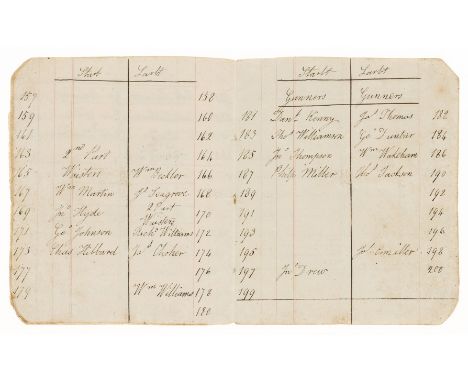 Starb Larbd
159 158
159 160
161 162
163 2nd Part 164
165 Waisters Wm 166
167 Wm Martin Jas Seagrove 168
169 Jno Hyde 2 Part Waisters 170
171 Geo Johnson Richd Williams 172
173 Chas Hibbard Jas 174
177 176
179 Wm Williams 178
180
Starbd Larbd
Gunners Gunners
181 Danl Kenny Jas Thomas 182
183 Thos Williamson Geo Dunbar 184
185 Jno Thompson Wm Wakeham 186
187 Philip Miller Thos Jackson 190
189 192
191 194
193 196
195 198
197 Jno Drew 200
199